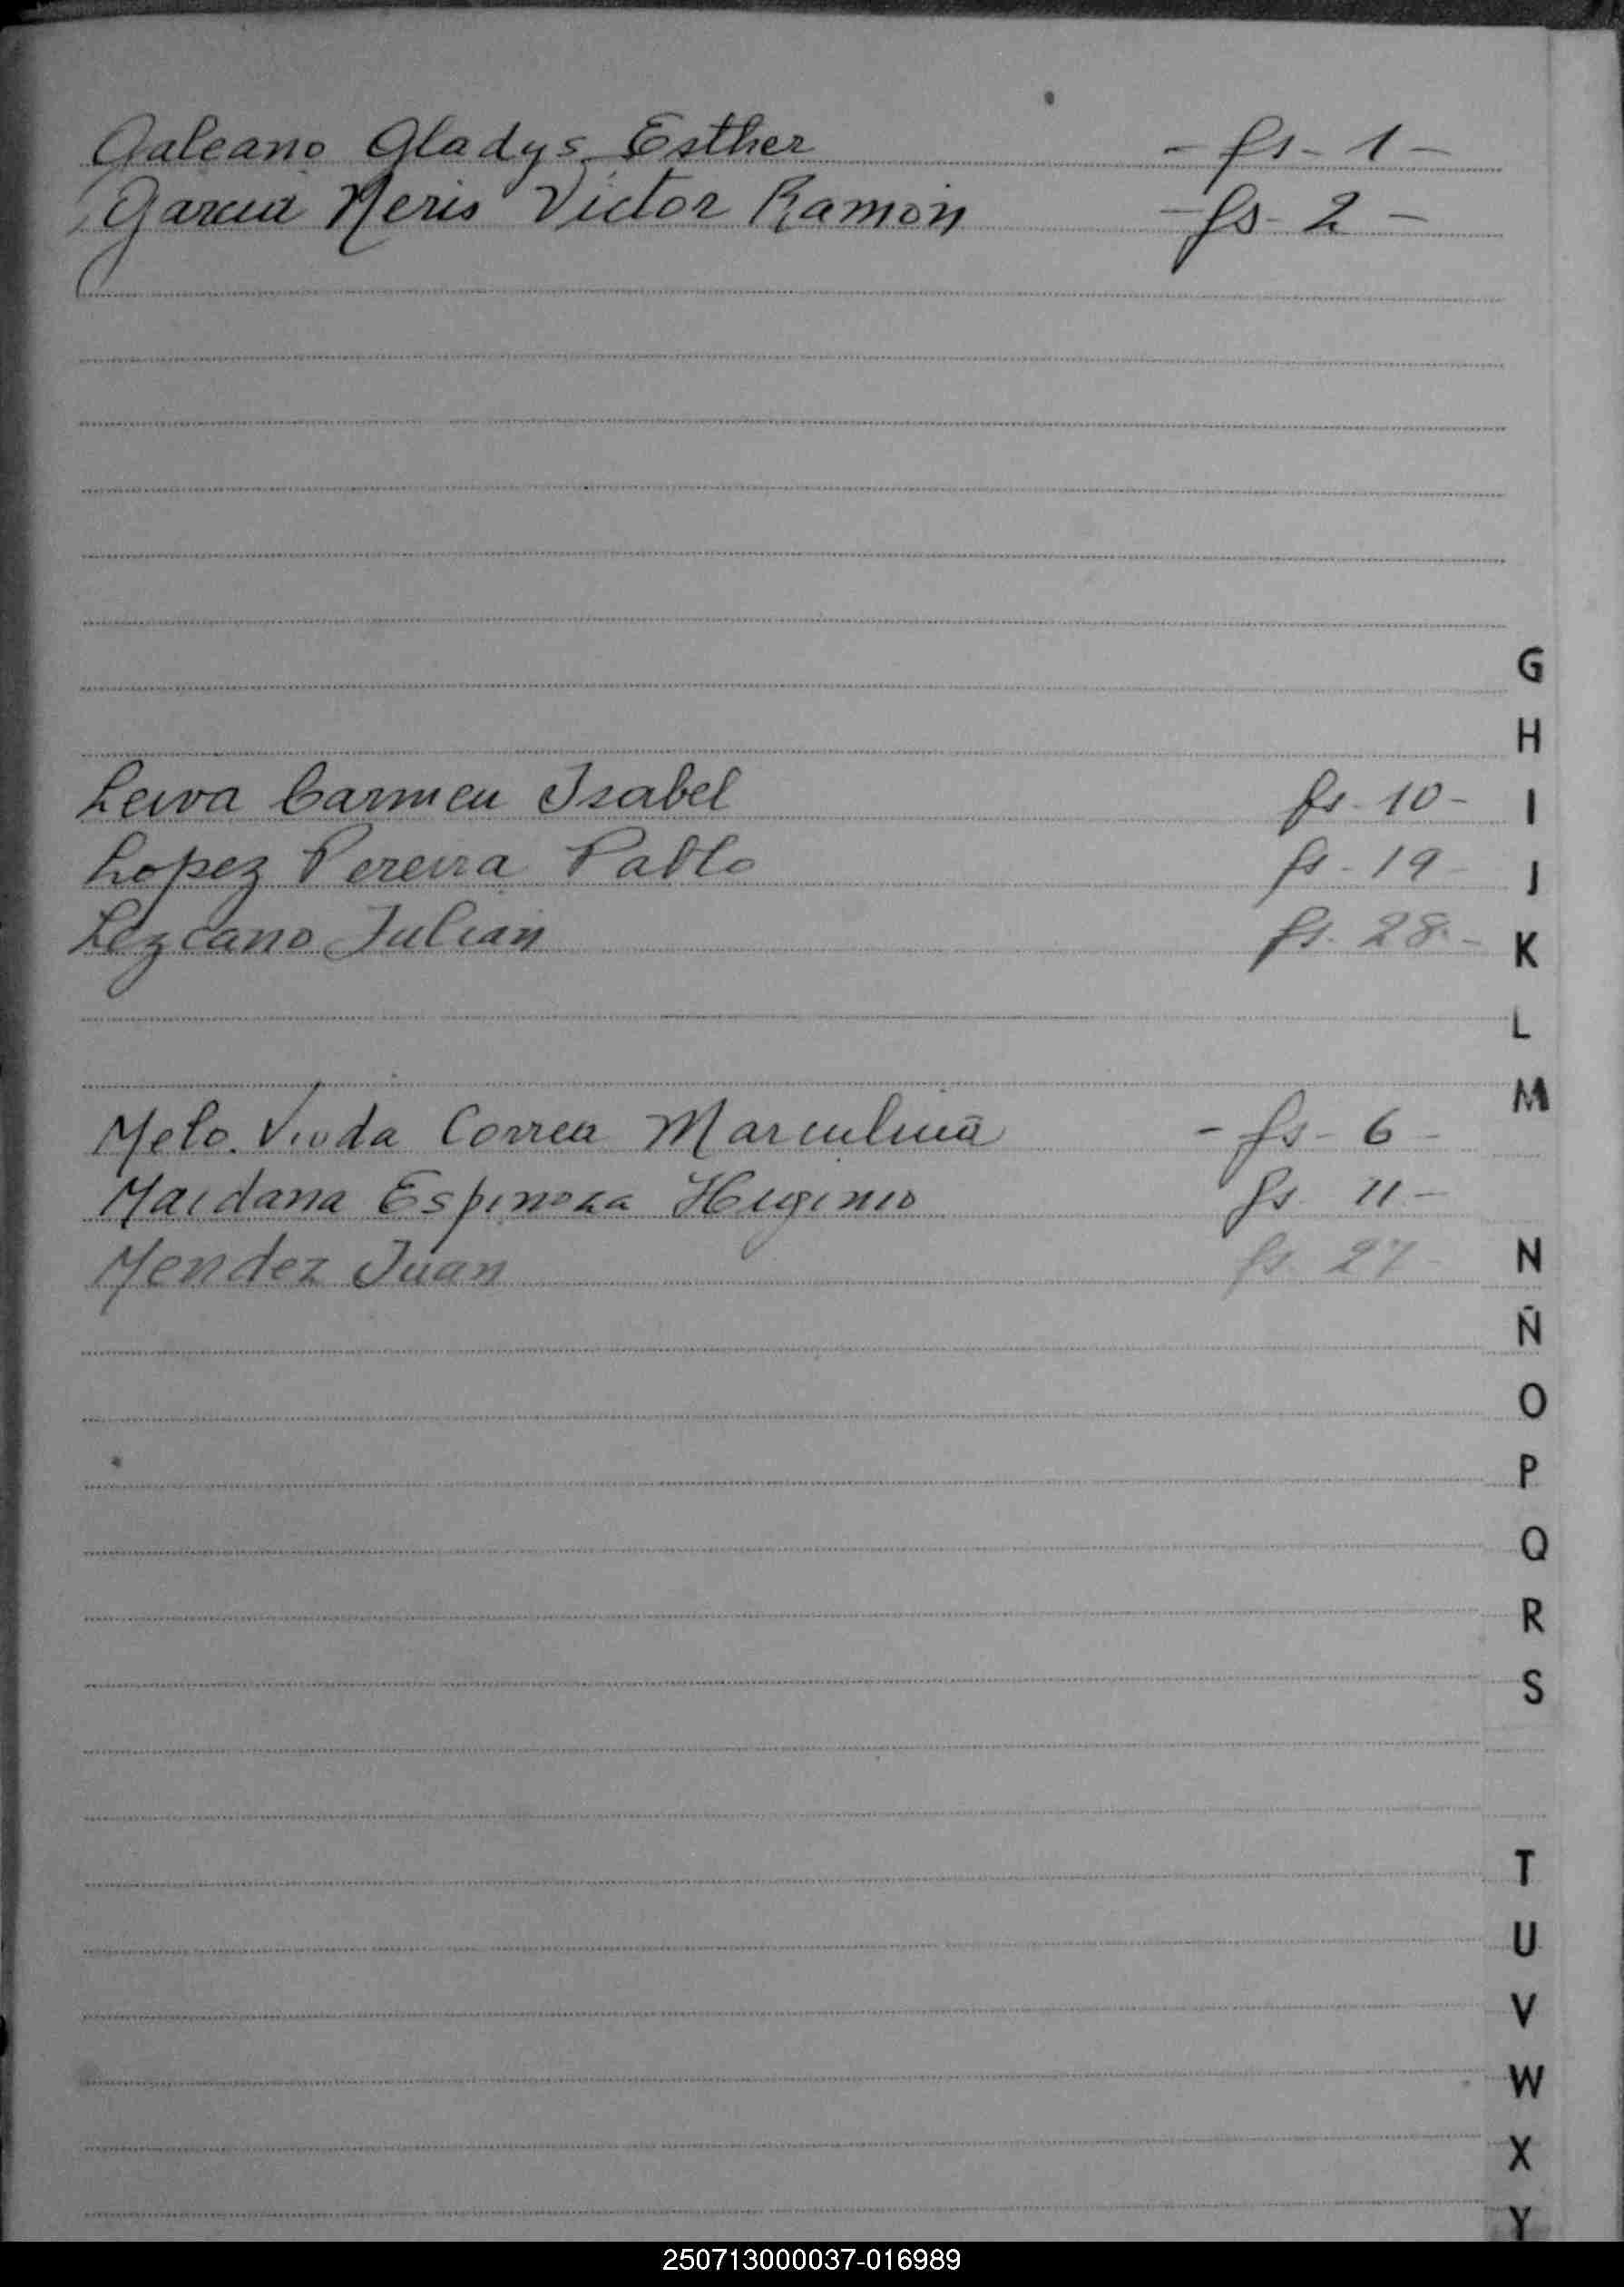 Galeano Gladys Esther - fs - 1 -
Garcia Neris Victor Ramón - fs - 2 -
G
H
Leiva Carmen Isabel fs - 10 -
I
Lopez Pereira Pablo fs - 19 -
J
Lezcano Julian fs. 28. -
K
L
M
Melo Viuda Correa Marculina - fs - 6 -
Maidana Espinoza Higinio fs. 11 -
Mendez Juan fs. 27 -
N
Ñ
O
P
Q
R
S
T
U
V
W
X
Y
250713000037-016989